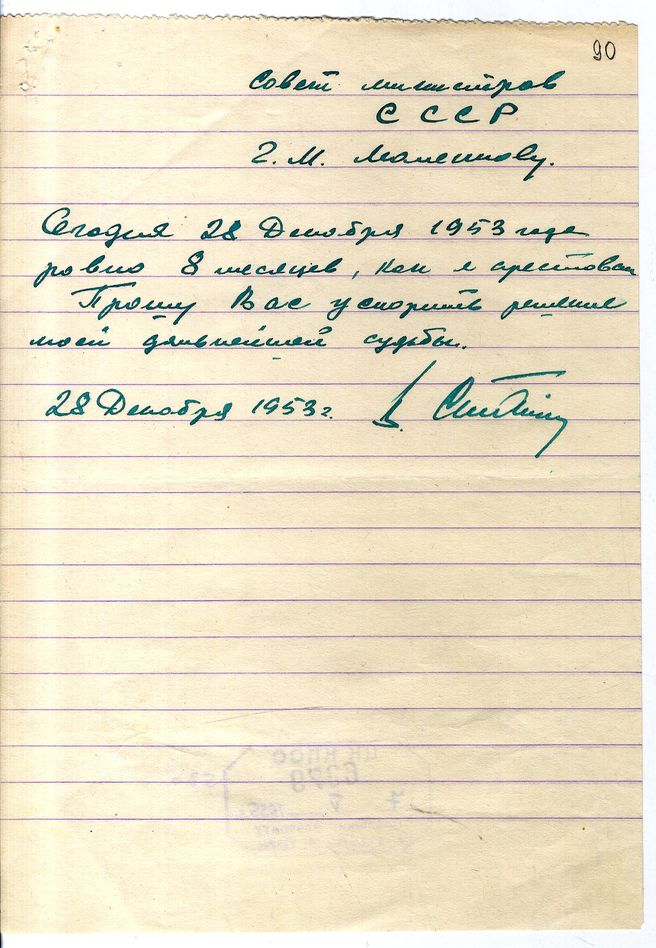 90
Совет министров
СССР
Г. М. Маленкову.
Сегодня 28 Декабря 1953 года
ровно 8 месяцев, как я арестован
Прошу Вас ускорить решение
моей дальнейшей судьбы.
28 Декабря 1953 г. В. Сталин